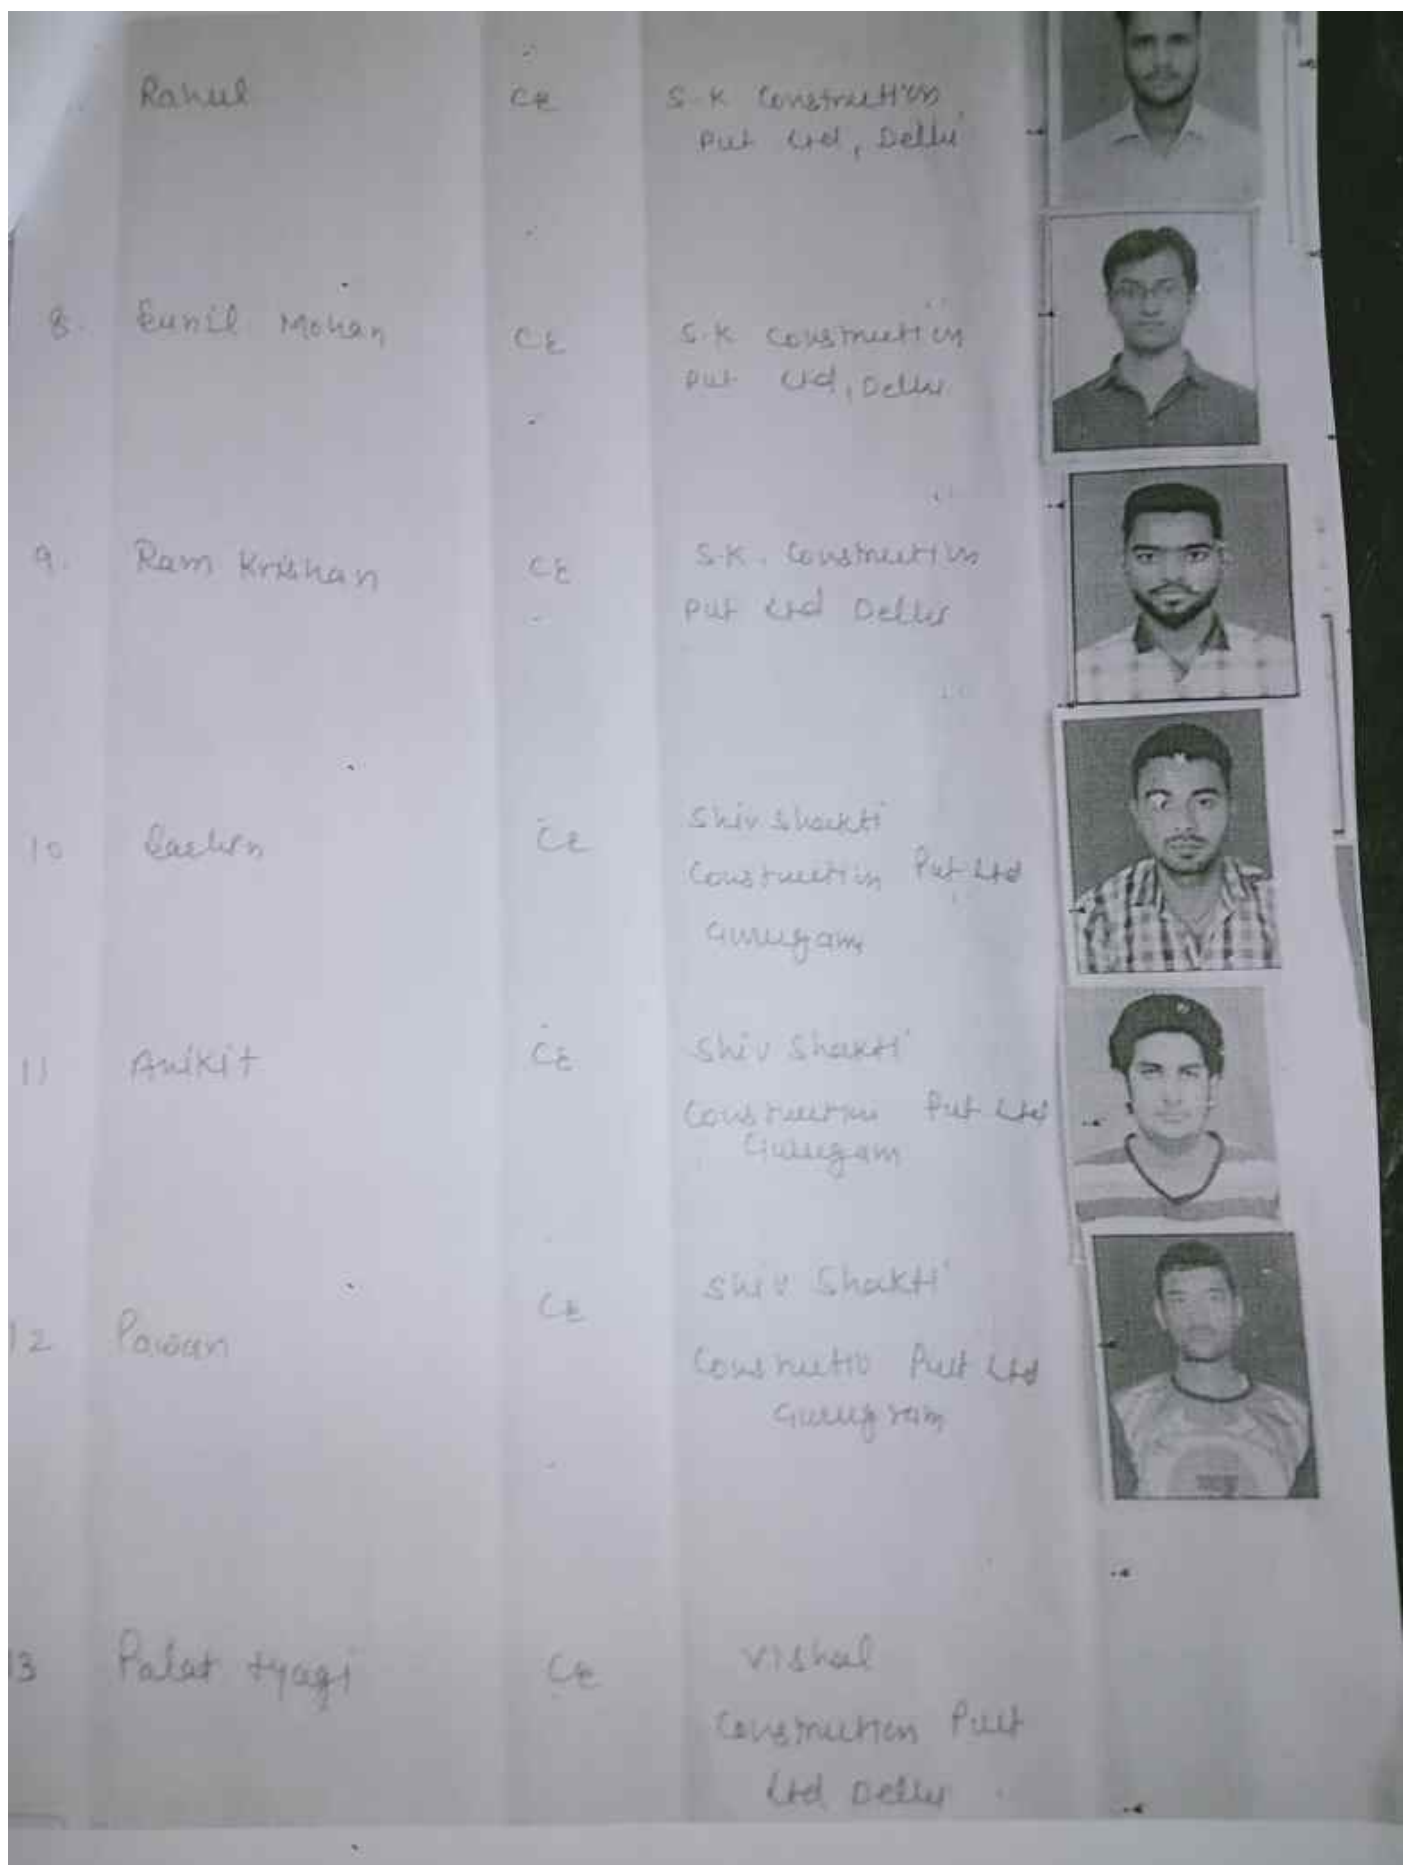 Rahul CE S.K Construction
Pvt Ltd, Delhi
8. Sunil Mohan CE S.K Construction
Pvt Ltd, Delhi
9. Ram Krishan CE S.K. Construction
Pvt Ltd Delhi
10 Sachin CE Shiv Shakti
Construction Pvt Ltd
Gurugam
11 Anikit CE Shiv Shakti
Construction Pvt Ltd
Gurugam
12 Pawan CE Shiv Shakti
Constructio Pvt Ltd
Gurugram
13 Palat tyagi CE Vishal
Construction Pvt
Ltd Delhi